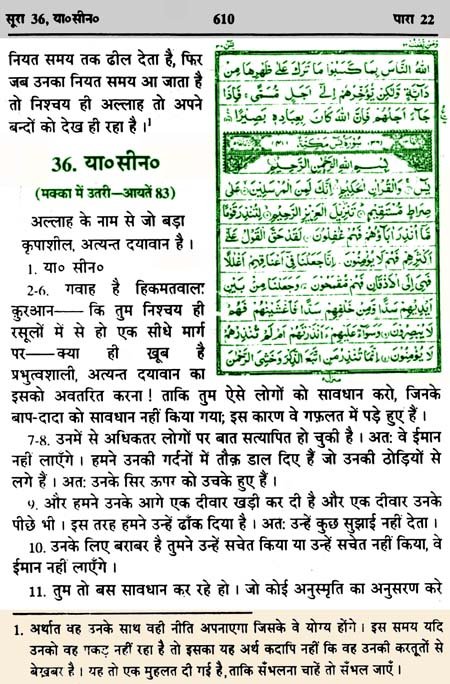 सूरा 36, या०सीन० 610 पारा 22
नियत समय तक ढील देता है, फिर
जब उनका नियत समय आ जाता है
तो निश्चय ही अल्लाह तो अपने
बन्दों को देख ही रहा है।¹
36. या०सीन०
(मक्का में उतरी—आयतें 83)
अल्लाह के नाम से जो बड़ा
कृपाशील, अत्यन्त दयावान है।
1. या० सीन०
2-6. गवाह है हिकमतवाला
क़ुरआन—— कि तुम निश्चय ही
रसूलों में से हो एक सीधे मार्ग
पर—— क्या ही ख़ूब है
प्रभुत्वशाली, अत्यन्त दयावान का
اللهُ النَّاسَ بِمَا كَسَبُوْا مَا تَرَكَ عَلٰى ظَهْرِهَا مِنْ
دَآبَّةٍ وَّلٰكِنْ يُّؤَخِّرُهُمْ اِلٰٓى اَجَلٍ مُّسَمًّى ۚ فَاِذَا
جَآءَ اَجَلُهُمْ فَاِنَّ اللهَ كَانَ بِعِبَادِهٖ بَصِيْرًا
سُوْرَةُ يٰسٓ مَكِّيَّةٌ
بِسْمِ اللهِ الرَّحْمٰنِ الرَّحِيْمِ
يٰسٓ ۚ وَالْقُرْاٰنِ الْحَكِيْمِ ۙ اِنَّكَ لَمِنَ الْمُرْسَلِيْنَ ۙ عَلٰى
صِرَاطٍ مُّسْتَقِيْمٍ ؕ تَنْزِيْلَ الْعَزِيْزِ الرَّحِيْمِ ۙ لِتُنْذِرَ قَوْمًا
مَّآ اُنْذِرَ اٰبَآؤُهُمْ فَهُمْ غٰفِلُوْنَ ۞ لَقَدْ حَقَّ الْقَوْلُ عَلٰٓى
اَكْثَرِهِمْ فَهُمْ لَا يُؤْمِنُوْنَ ۞ اِنَّا جَعَلْنَا فِيْٓ اَعْنَاقِهِمْ اَغْلٰلًا
فَهِيَ اِلَى الْاَذْقَانِ فَهُمْ مُّقْمَحُوْنَ ۞ وَجَعَلْنَا مِنْۢ بَيْنِ
اَيْدِيْهِمْ سَدًّا وَّمِنْ خَلْفِهِمْ سَدًّا فَاَغْشَيْنٰهُمْ فَهُمْ
لَا يُبْصِرُوْنَ ۞ وَسَوَآءٌ عَلَيْهِمْ ءَاَنْذَرْتَهُمْ اَمْ لَمْ تُنْذِرْهُمْ
لَا يُؤْمِنُوْنَ ۞ اِنَّمَا تُنْذِرُ مَنِ اتَّبَعَ الذِّكْرَ وَخَشِيَ الرَّحْمٰنَ
इसको अवतरित करना! ताकि तुम ऐसे लोगों को सावधान करो, जिनके
बाप-दादा को सावधान नहीं किया गया; इस कारण वे गफ़लत में पड़े हुए हैं।
7-8. उनमें से अधिकतर लोगों पर बात सत्यापित हो चुकी है। अतः वे ईमान
नहीं लाएँगे। हमने उनकी गर्दनों में तौक़ डाल दिए हैं जो उनकी ठोड़ियों से
लगे हैं। अतः उनके सिर ऊपर को उचके हुए हैं।
9. और हमने उनके आगे एक दीवार खड़ी कर दी है और एक दीवार उनके
पीछे भी। इस तरह हमने उन्हें ढाँक दिया है। अतः उन्हें कुछ सुझाई नहीं देता।
10. उनके लिए बराबर है तुमने उन्हें सचेत किया या उन्हें सचेत नहीं किया, वे
ईमान नहीं लाएँगे।
11. तुम तो बस सावधान कर रहे हो। जो कोई अनुस्मृति का अनुसरण करे
1. अर्थात वह उनके साथ वही नीति अपनाएगा जिसके वे योग्य होंगे। इस समय यदि
उनको वह पकड़ नहीं रहा है तो इसका यह अर्थ कदापि नहीं कि वह उनकी करतूतों से
बेख़बर है। यह तो एक मुहलत दी गई है, ताकि सँभलना चाहें तो सँभल जाएँ।